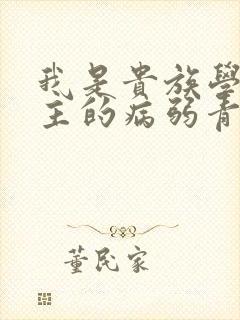 我是貴族學
主的病弱青
董民家